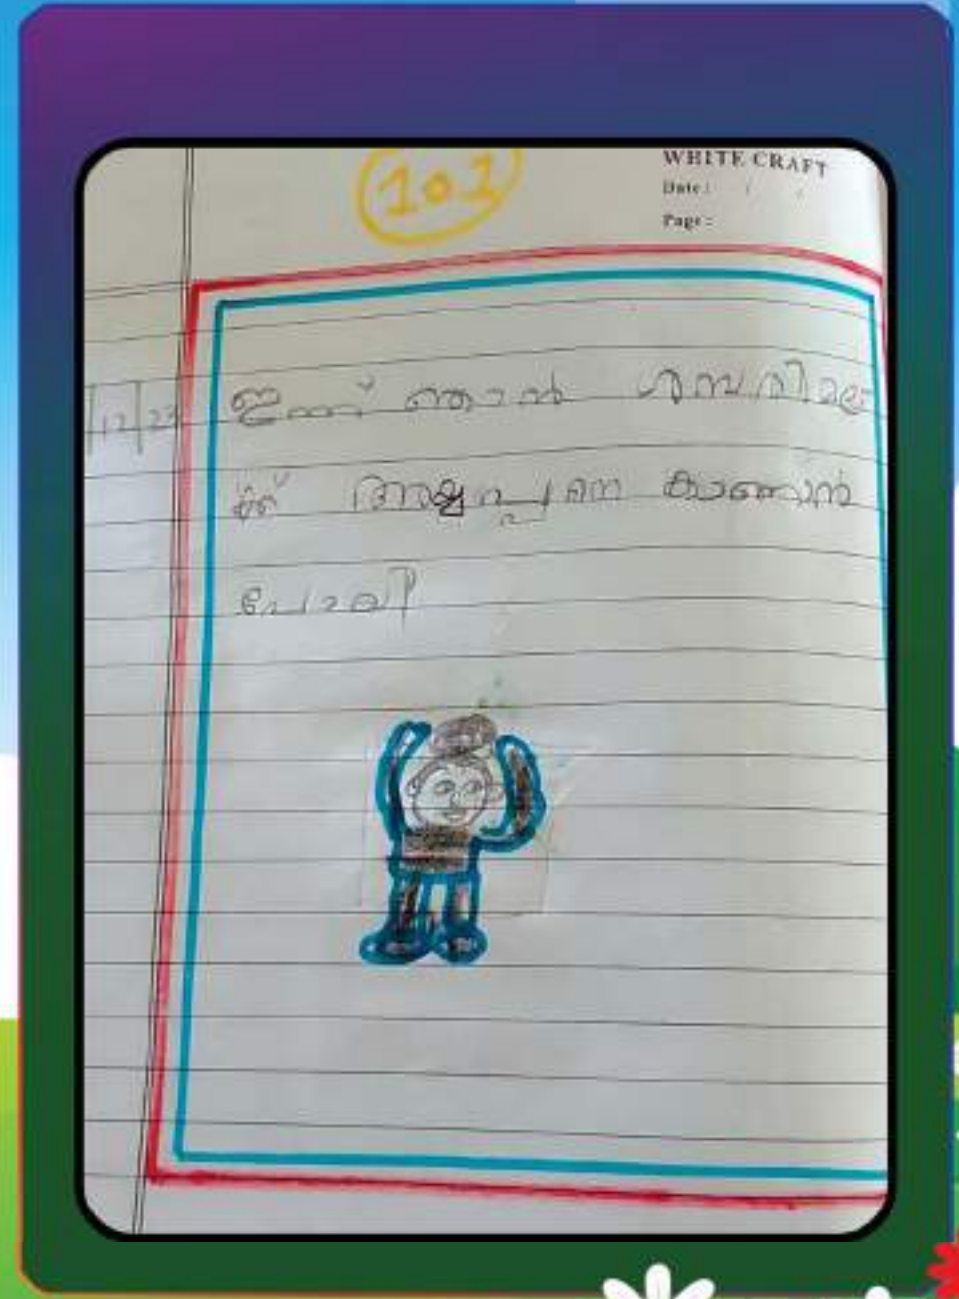 101
WHITE CRAFT
Date : / /
Page :
/12/23 ഇന്ന് ഞാൻ ശബരിമല
ക്ക് അയ്യപ്പനെ കാണാൻ
പോയി